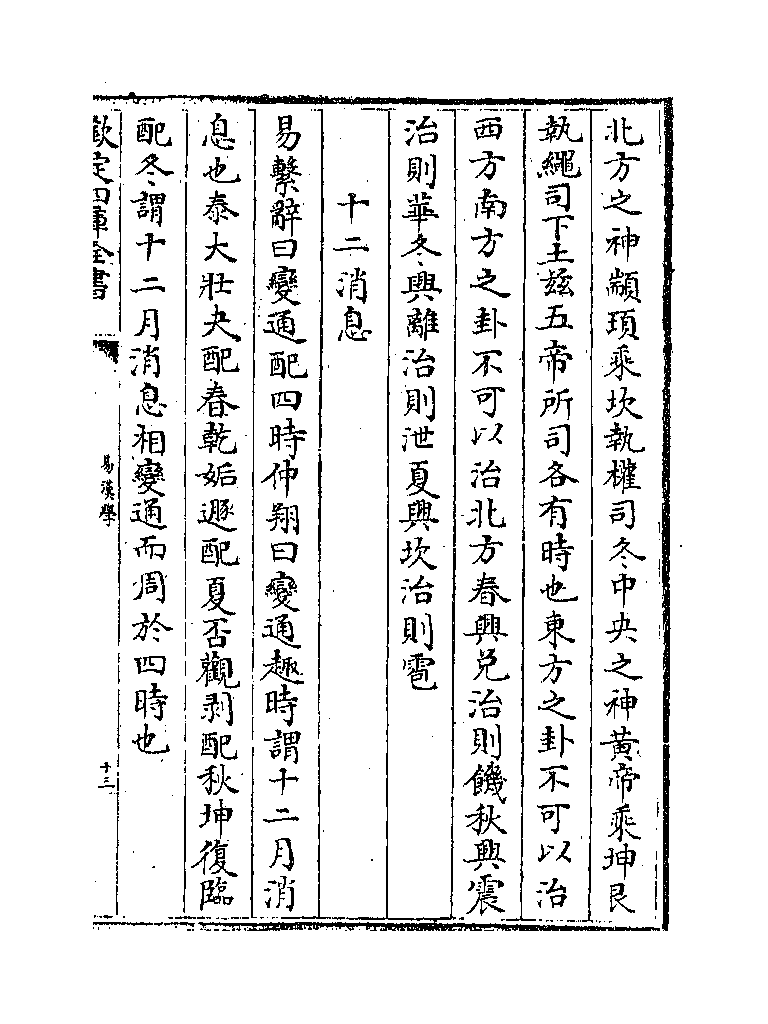 北方之神顓頊乘坎執權司冬中央之神黃帝乘坤艮
執繩司下土兹五帝所司各有時也東方之卦不可以治
西方南方之卦不可以治北方春興兌治則饑秋興震
治則華冬興離治則泄夏興坎治則雹
十二消息
易繫辭曰變通配四時仲翔曰變通趣時謂十二月消
息也泰大壯夬配春乾姤遯配夏否觀剥配秋坤復臨
配冬謂十二月消息相變通而周於四時也
欽定四庫全書
易漢學
十三